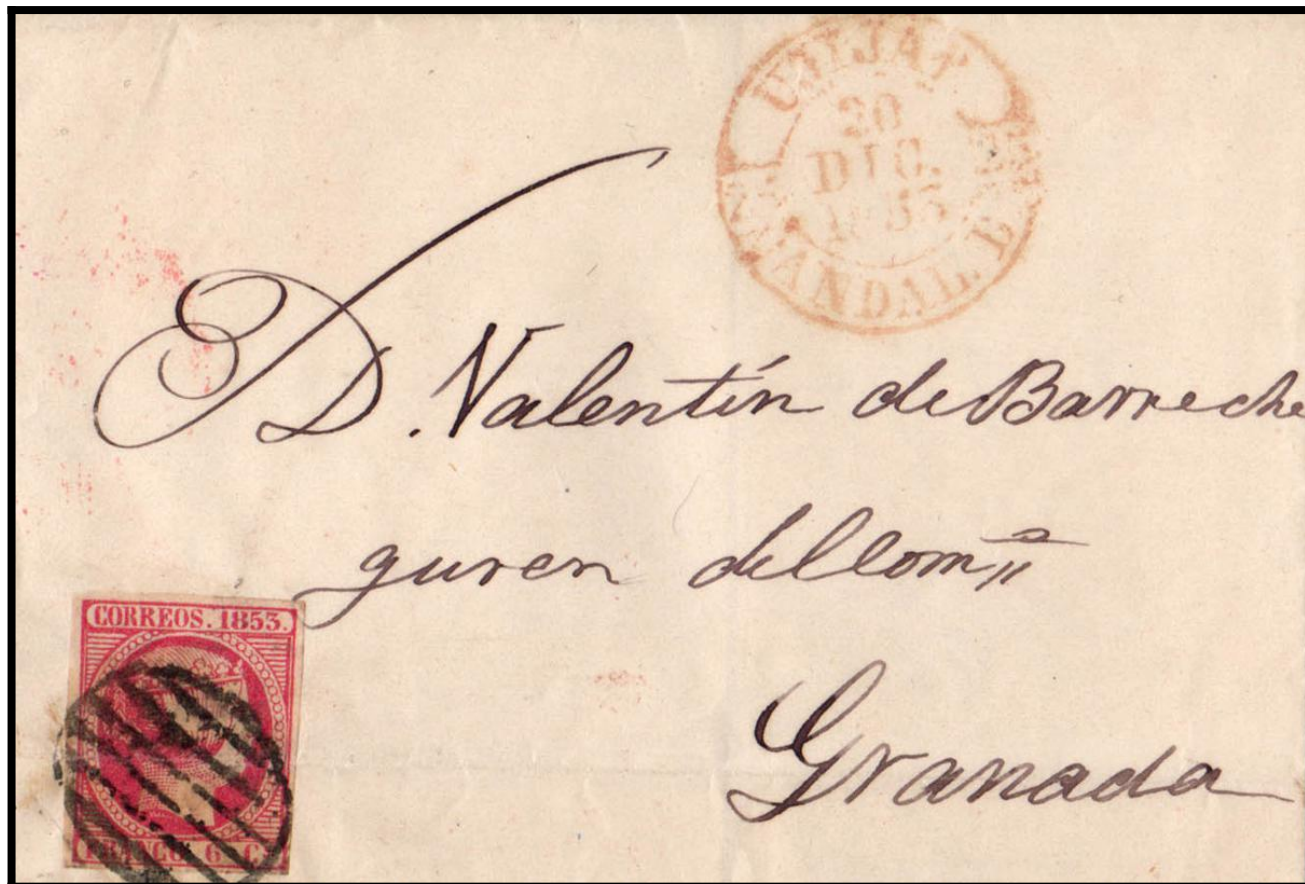 UJIJAR
20
DIC.
1853
ANDAL. E
D. Valentín de Barreche
guren del Com.º
Granada
CORREOS. 1853.
FRANCO 6 C